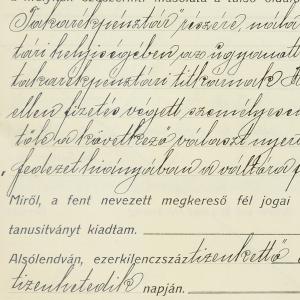 Takarékpénztár részére, váltó
tári helyiségében az ugyanott
takarékpénztári titkárnak
ellen fizetés végett személyesen
tőle a következő választ nyer
„fedezet hiányában a váltóra f
Miről, a fent nevezett megkereső fél jogai
tanusítványt kiadtam.
Alsólendván, ezerkilenczszáz tizenkettő
tizenhetedik napján.